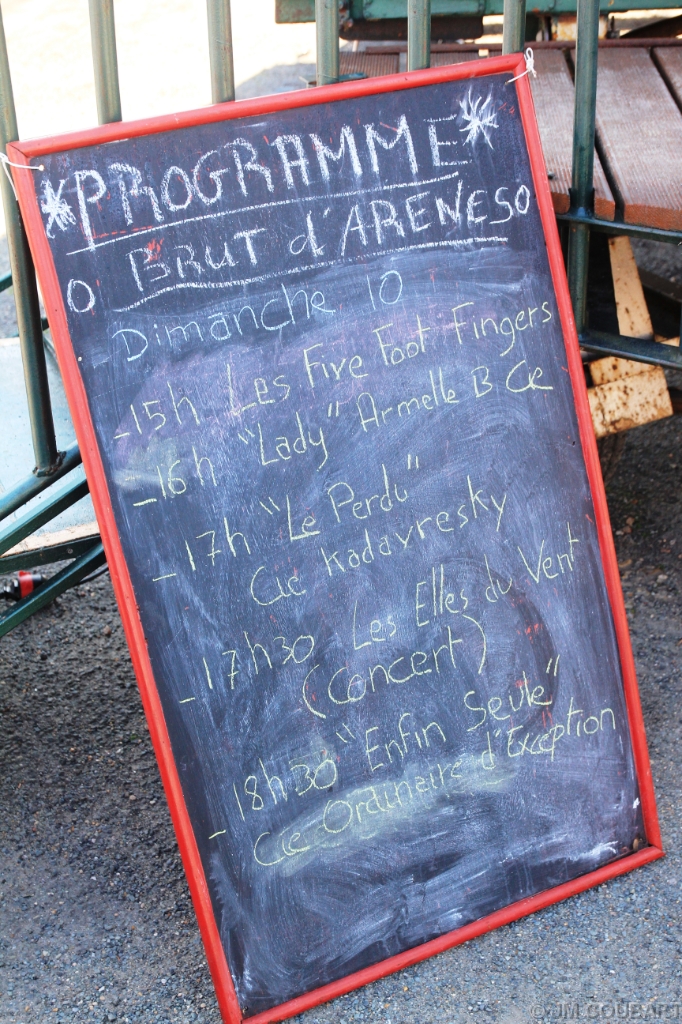 *PROGRAMME*
O BRUT d'ARENESO
Dimanche 10
-15h Les Five Foot Fingers
-16h "Lady" Armelle B Cie
-17h "Le Perdu"
Cie Kadavresky
-17h30 Les Elles du Vent
(Concert)
-18h30 "Enfin Seule"
Cie Ordinaire d'Exception
© JM COUBART